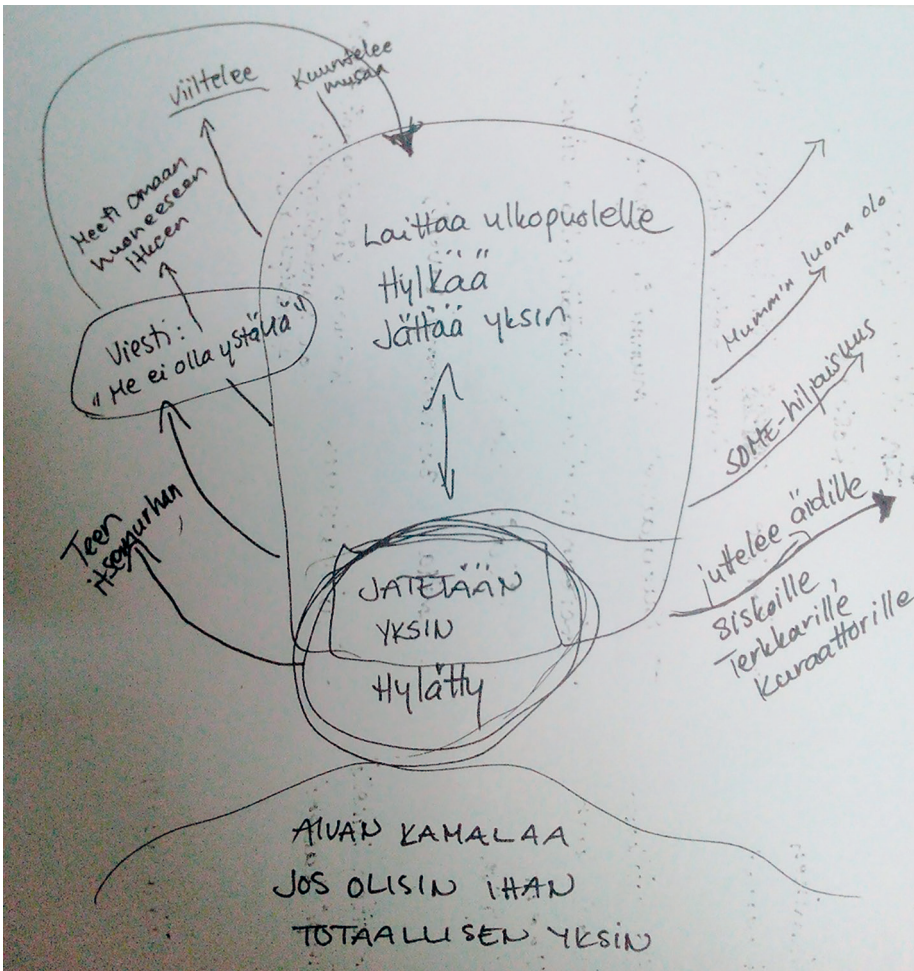 viiltelee
Kuuntelee
musaa
Meeti omaan
huoneeseen
itkeen
Viesti:
"Me ei olla ystäviä"
Teen
itsemurhan
Laittaa ulkopuolelle
Hylkää
Jättää yksin
JÄTETÄÄN
YKSIN
Hylätty
Mummin luona olo
SOME-hiljaisuus
juttelee äidille
siskoille,
Terkkarille
Kuraattorille
AIVAN KAMALAA
JOS OLISIN IHAN
TOTAALLISEN YKSIN